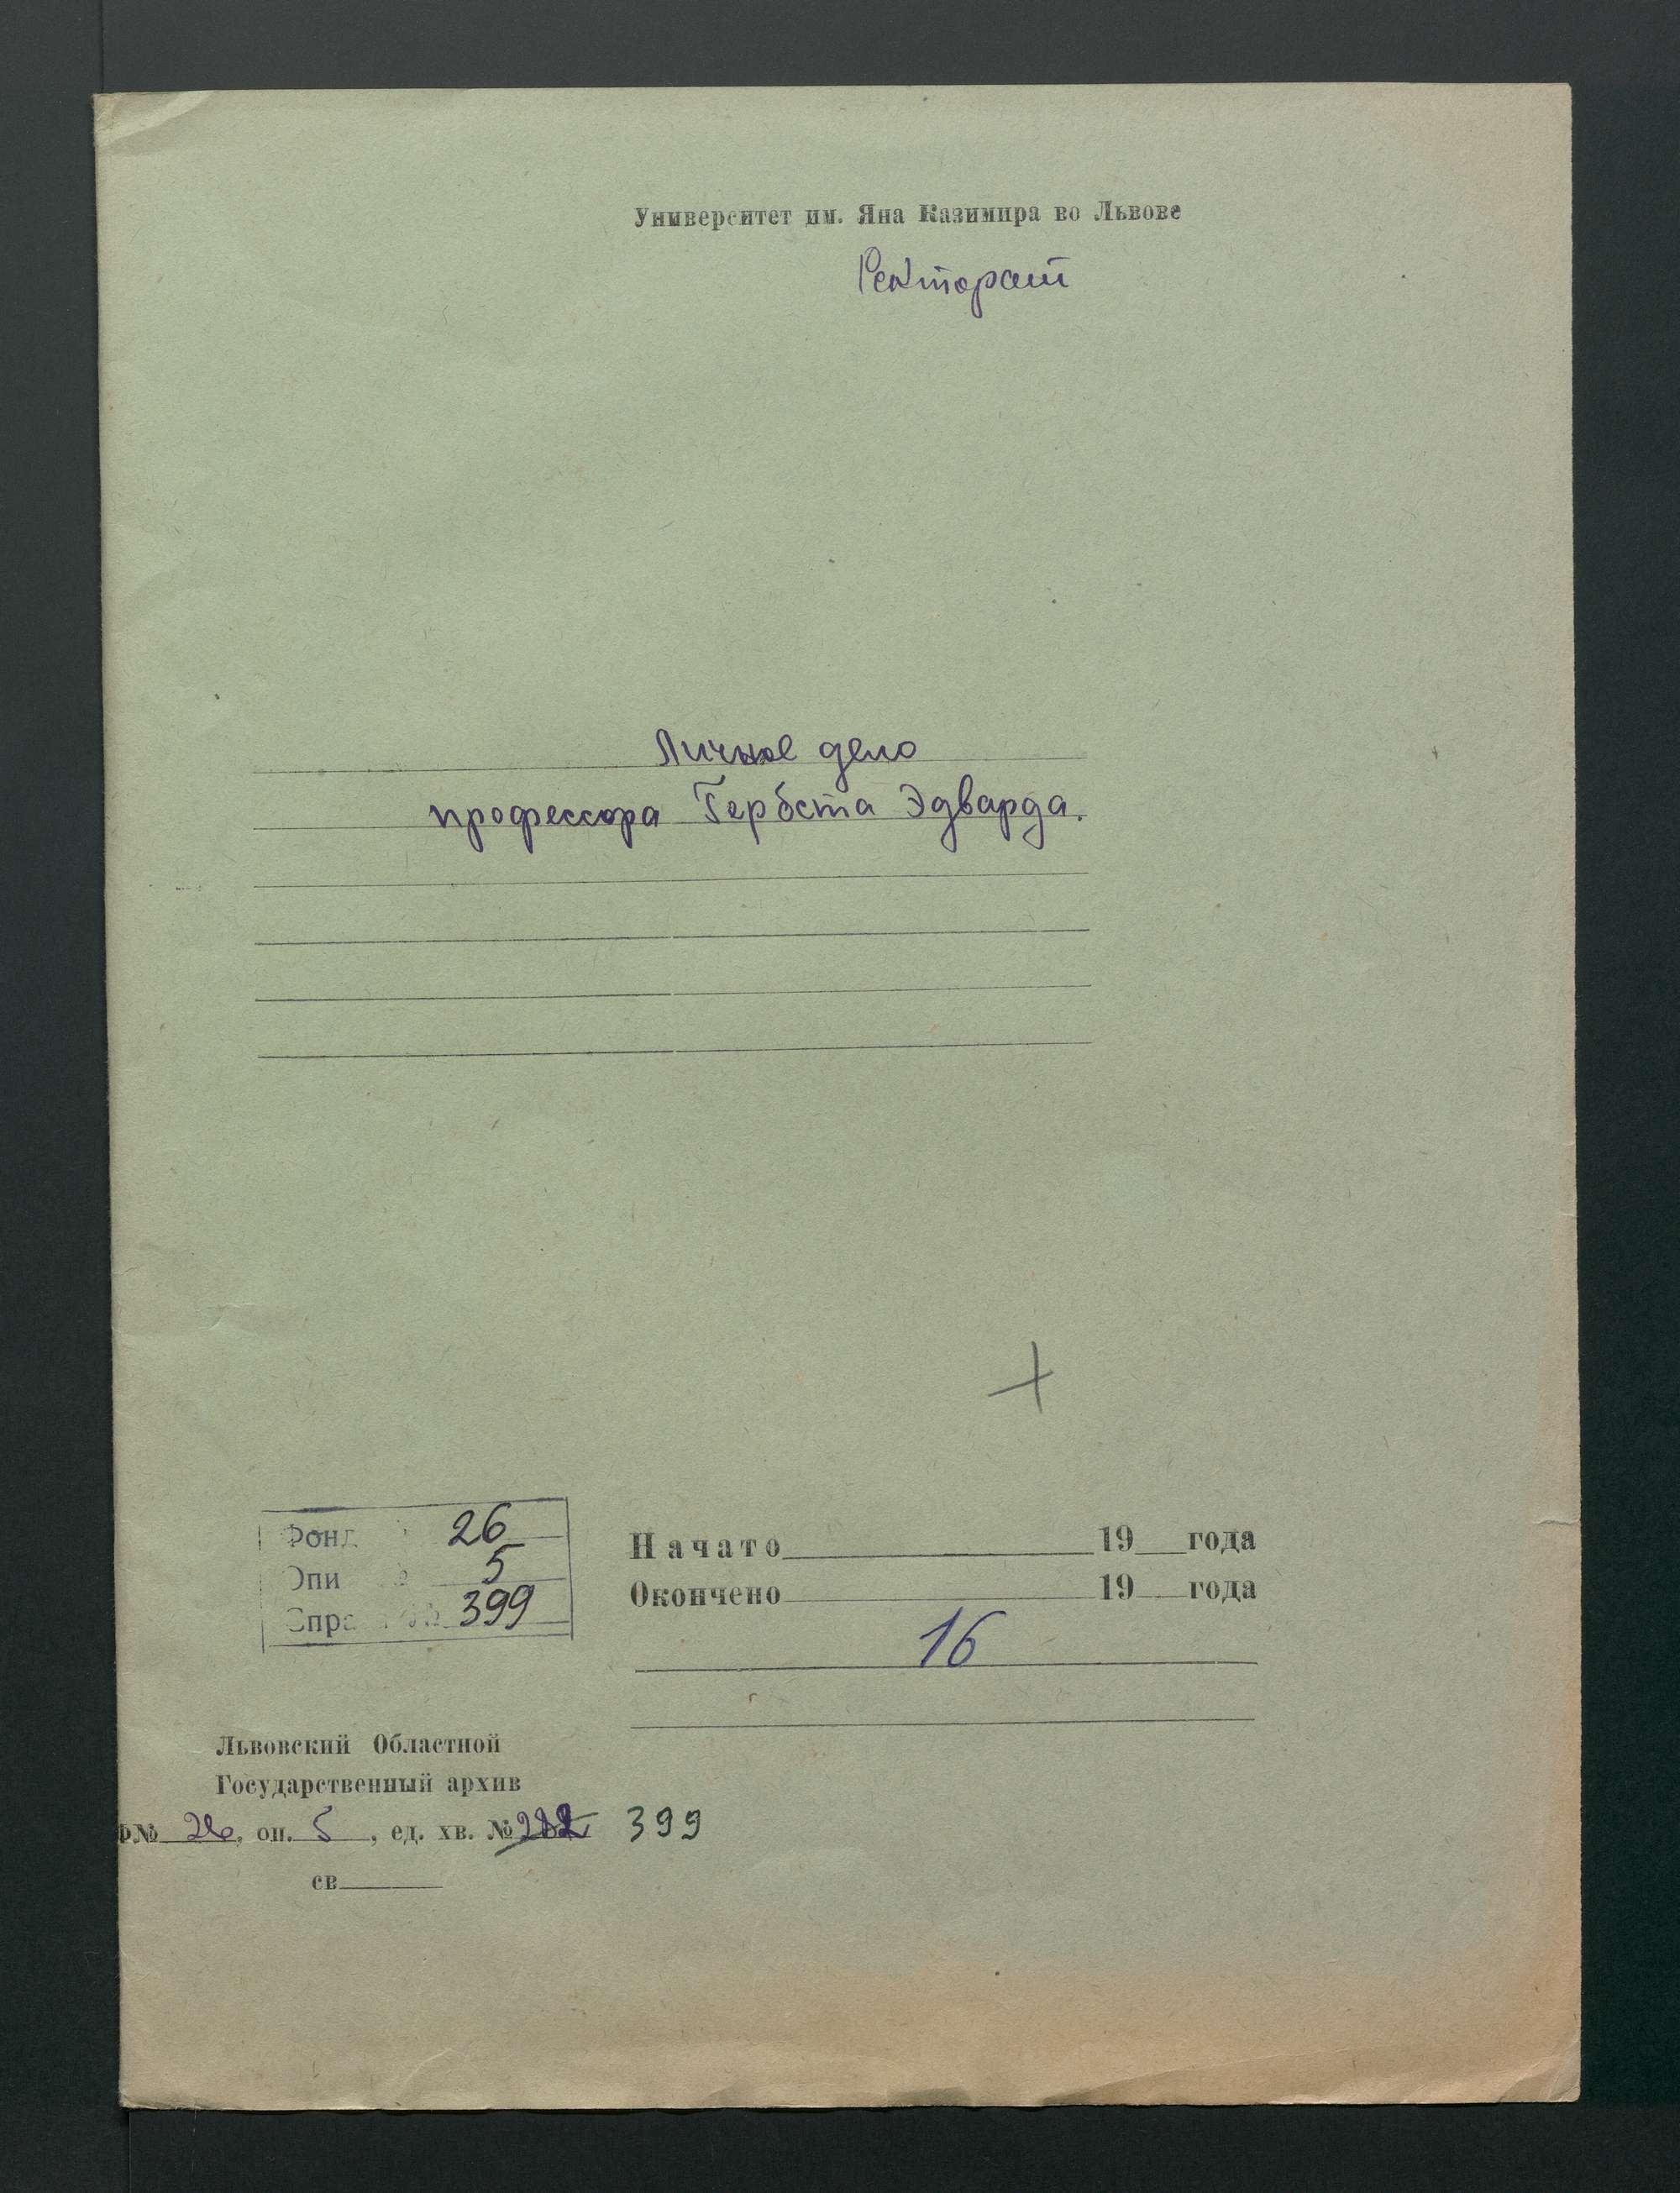 Университет им. Яна Казимира во Львове
Ректорат
Личное дело
профессора Гербста Эдварда.
Фонд 26
Опи 5
Спра 399
Начато 19 года
Окончено 19 года
16
Львовский Областной
Государственный архив
Ф№ 26, оп. 5, ед. хв. № 399
св